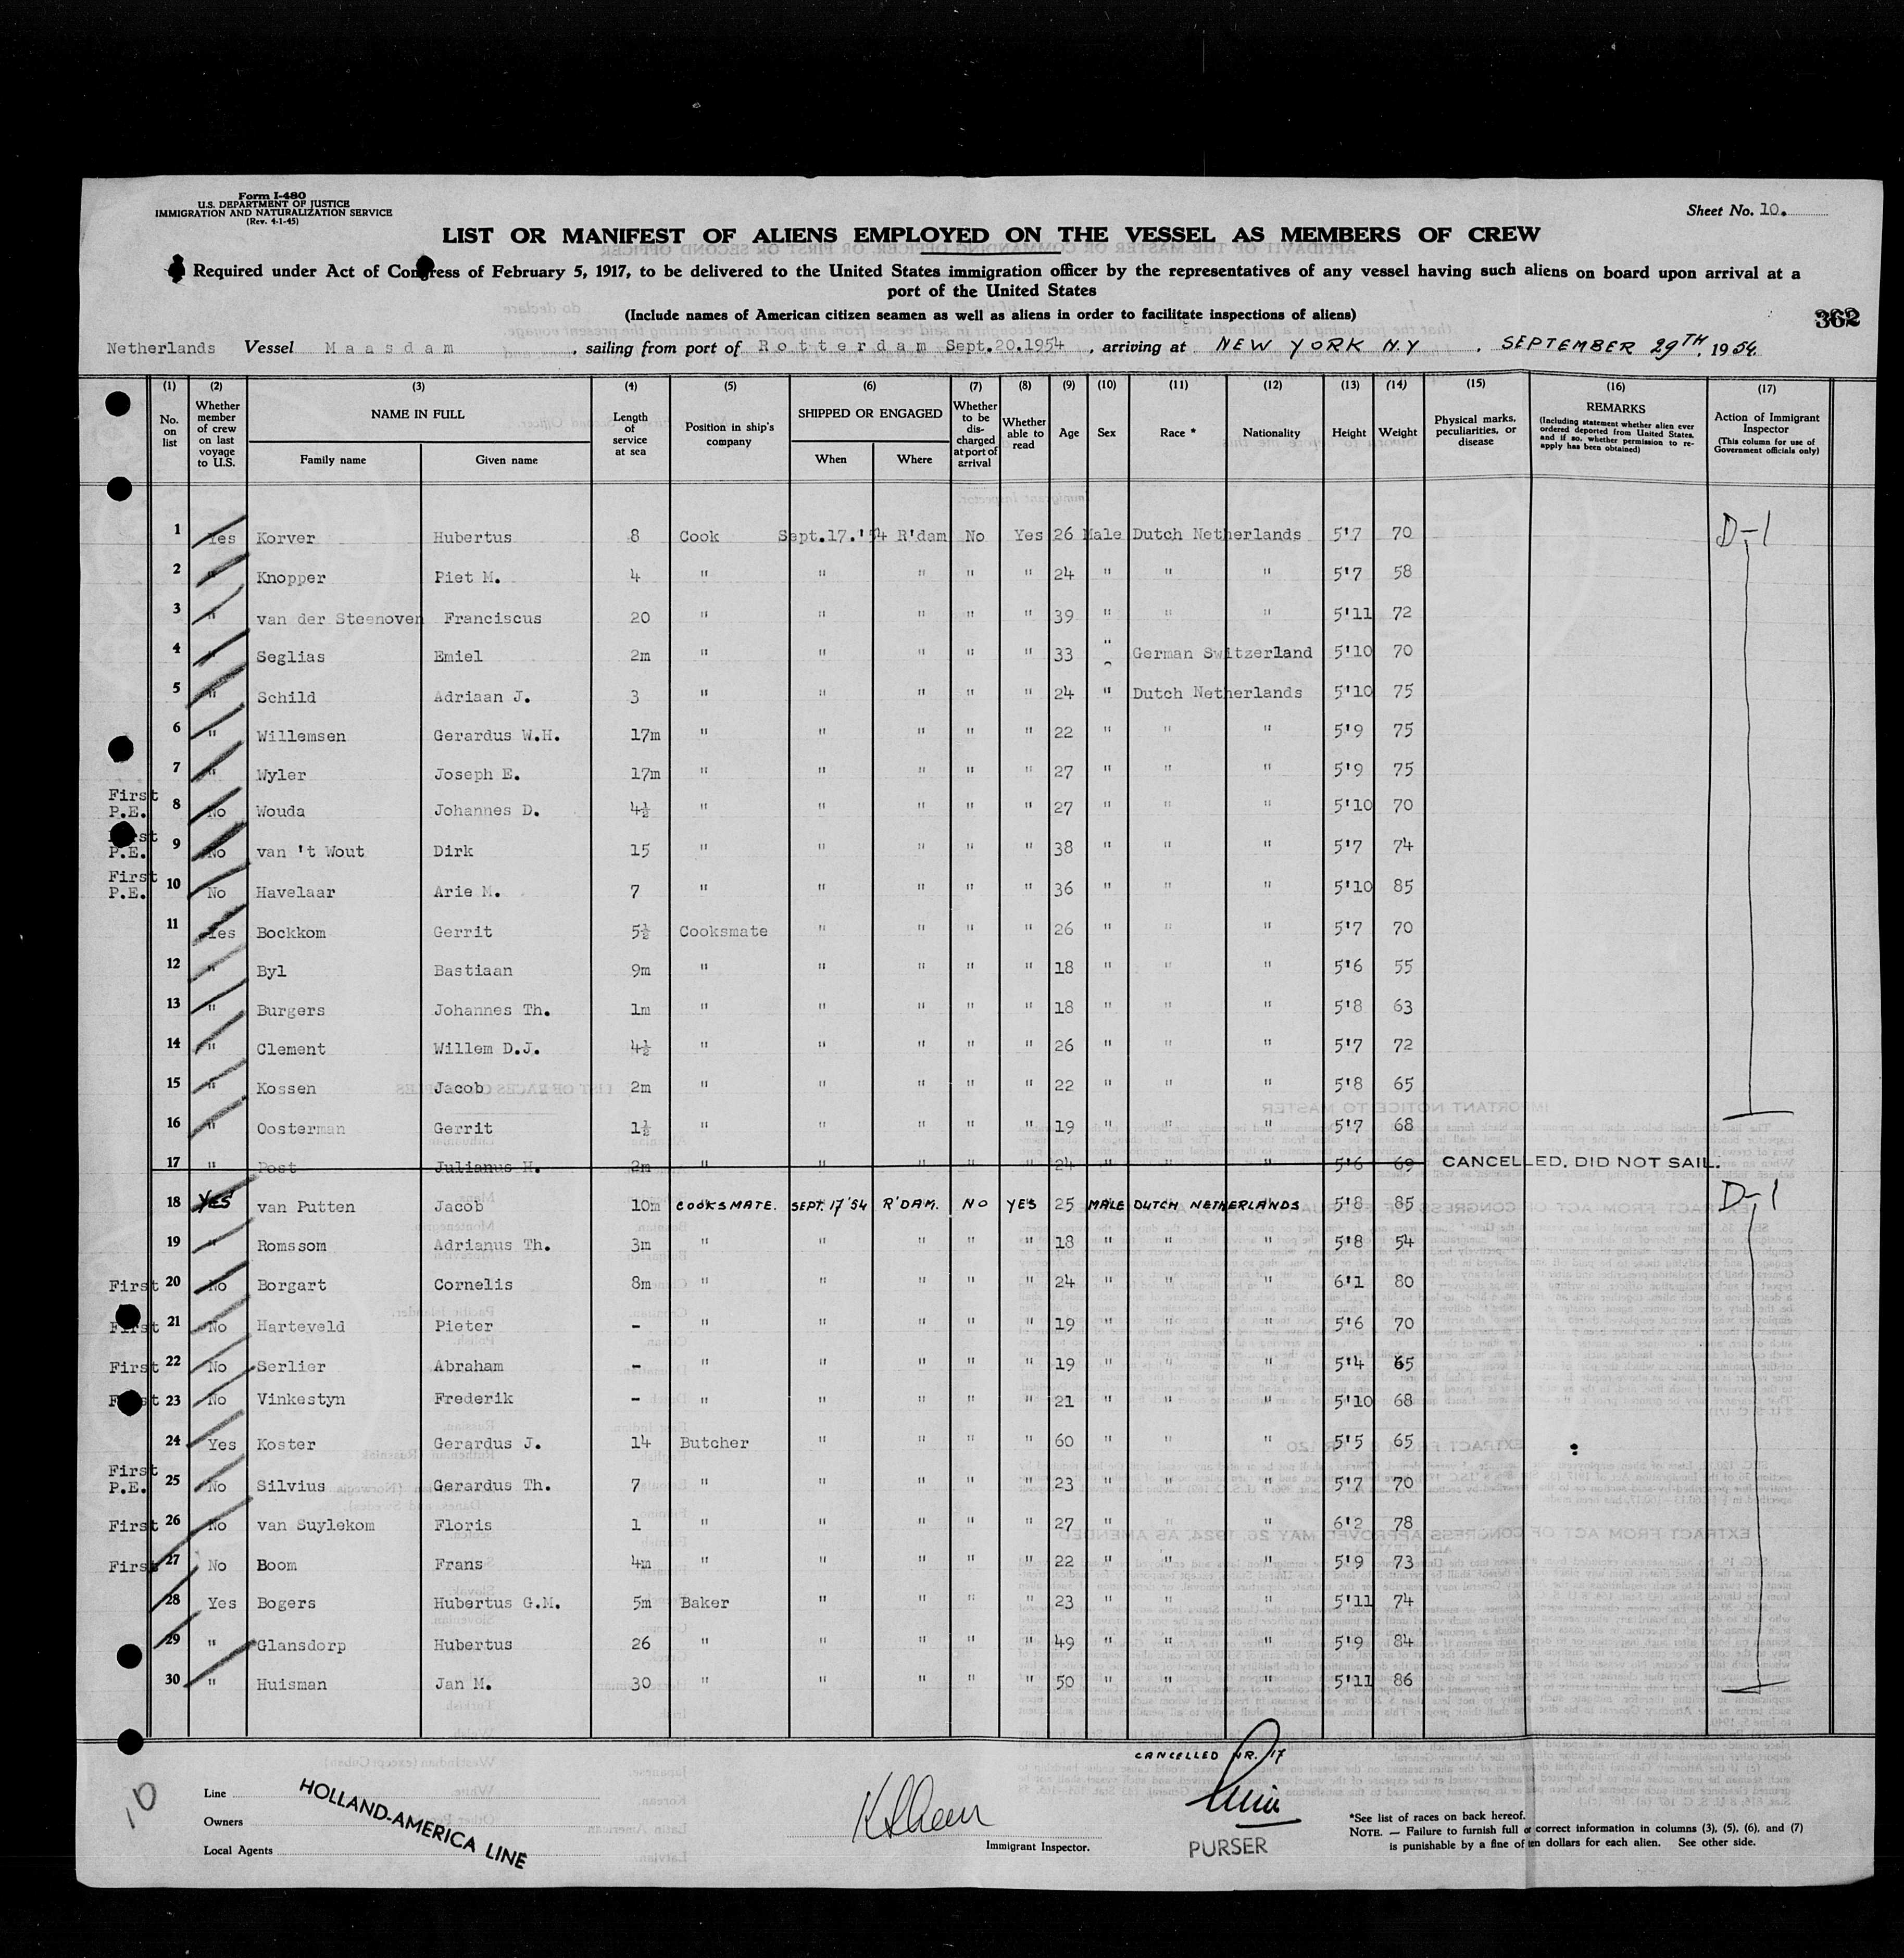 Form I-480
U.S. DEPARTMENT OF JUSTICE
IMMIGRATION AND NATURALIZATION SERVICE
(Rev. 4-1-45)
Sheet No. 10.
LIST OR MANIFEST OF ALIENS EMPLOYED ON THE VESSEL AS MEMBERS OF CREW
Required under Act of Congress of February 5, 1917, to be delivered to the United States immigration officer by the representatives of any vessel having such aliens on board upon arrival at a
port of the United States
(Include names of American citizen seamen as well as aliens in order to facilitate inspections of aliens)
362
Netherlands Vessel Maasdam, sailing from port of Rotterdam Sept.20.1954, arriving at NEW YORK N.Y. SEPTEMBER 29TH, 1954.
(1) (2) (3) (4) (5) (6) (7) (8) (9) (10) (11) (12) (13) (14) (15) (16) (17)
No. on list | Whether member of crew on last voyage to U.S. | NAME IN FULL | Family name | Given name | Length of service at sea | Position in ship's company | SHIPPED OR ENGAGED | When | Where | Whether to be discharged at port of arrival | Whether able to read | Age | Sex | Race * | Nationality | Height | Weight | Physical marks, peculiarities, or disease | REMARKS (Including statement whether alien ever ordered deported from United States, and if so, whether permission to reapply has been obtained) | Action of Immigrant Inspector (This column for use of Government officials only)
1 Yes Korver Hubertus 8 Cook Sept.17.'54 R'dam No Yes 26 Male Dutch Netherlands 5'7 70 D-1
2 " Knopper Piet M. 4 " " " " " 24 " " " 5'7 58
3 " van der Steenoven Franciscus 20 " " " " " 39 " " " 5'11 72
4 " Seglias Emiel 2m " " " " " 33 " German Switzerland 5'10 70
5 " Schild Adriaan J. 3 " " " " " 24 " Dutch Netherlands 5'10 75
6 " Willemsen Gerardus W.H. 17m " " " " " 22 " " " 5'9 75
7 " Wyler Joseph E. 17m " " " " " 27 " " " 5'9 75
First P.E. 8 No Wouda Johannes D. 4½ " " " " " 27 " " " 5'10 70
First P.E. 9 No van 't Wout Dirk 15 " " " " " 38 " " " 5'7 74
First P.E. 10 No Havelaar Arie M. 7 " " " " " 36 " " " 5'10 85
11 Yes Bockkom Gerrit 5½ Cooksmate " " " " 26 " " " 5'7 70
12 " Byl Bastiaan 9m " " " " " 18 " " " 5'6 55
13 " Burgers Johannes Th. 1m " " " " " 18 " " " 5'8 63
14 " Clement Willem D.J. 4½ " " " " " 26 " " " 5'7 72
15 " Kossen Jacob 2m " " " " " 22 " " " 5'8 65
16 " Oosterman Gerrit 1½ " " " " " 19 " " " 5'7 68
17 " Post Julianus H. 2m " " " " " 24 " " " 5'6 69 CANCELLED, DID NOT SAIL.
18 YES van Putten Jacob 10m COOKSMATE. SEPT. 17 '54 R'DAM. NO YES 25 MALE DUTCH NETHERLANDS 5'8 85 D-1
19 " Romssom Adrianus Th. 3m " " " " " 18 " " " 5'8 54
First 20 No Borgart Cornelis 8m " " " " " 24 " " " 6'1 80
First 21 No Harteveld Pieter - " " " " " 19 " " " 5'6 70
First 22 No Serlier Abraham - " " " " " 19 " " " 5'4 65
First 23 No Vinkestyn Frederik - " " " " " 21 " " " 5'10 68
24 Yes Koster Gerardus J. 14 Butcher " " " " 60 " " " 5'5 65
First P.E. 25 No Silvius Gerardus Th. 7 " " " " " 23 " " " 5'7 70
First 26 No van Suylekom Floris 1 " " " " " 27 " " " 6'2 78
First 27 No Boom Frans 4m " " " " " 22 " " " 5'9 73
28 Yes Bogers Hubertus G.M. 5m Baker " " " " 23 " " " 5'11 74
29 " Glansdorp Hubertus 26 " " " " " 49 " " " 5'9 84
30 " Huisman Jan M. 30 " " " " " 50 " " " 5'11 86
CANCELLED NR. 17
10
Line
Owners
Local Agents
HOLLAND-AMERICA LINE
Immigrant Inspector.
PURSER
*See list of races on back hereof.
NOTE. — Failure to furnish full or correct information in columns (3), (5), (6), and (7)
is punishable by a fine of ten dollars for each alien. See other side.